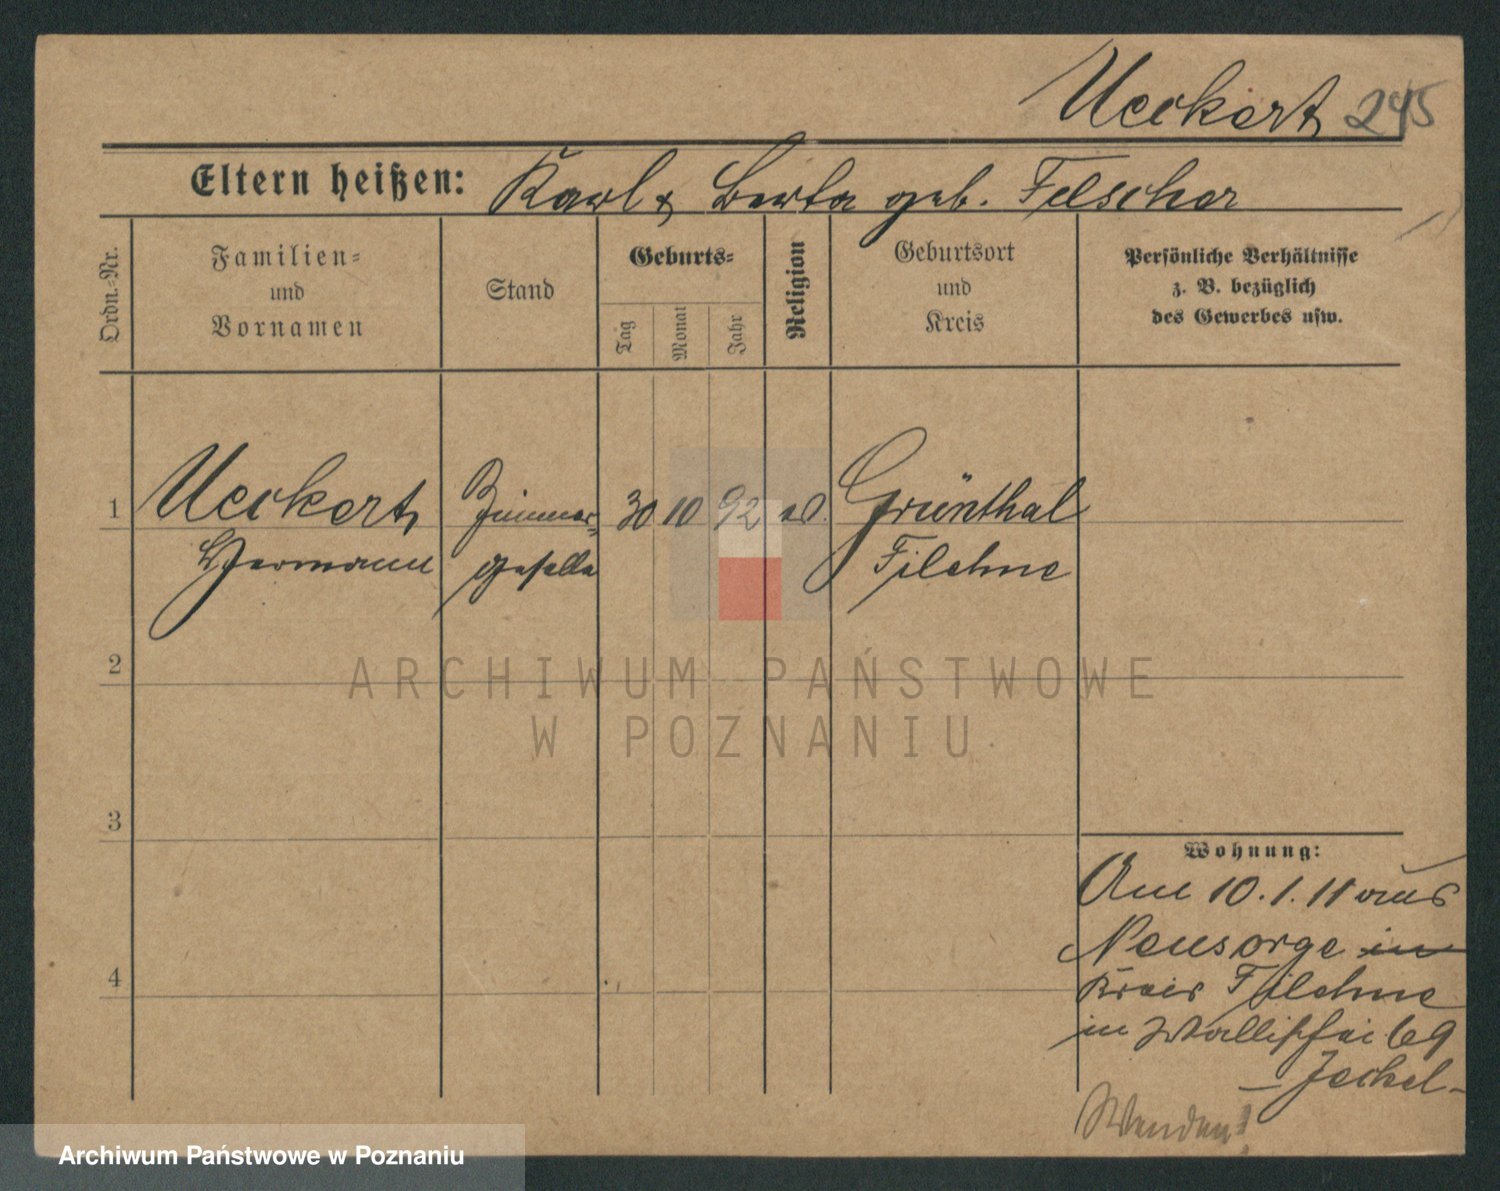 Ueckert 245
Eltern heißen: Karl & Berta geb. Filscher
Ordn.-Nr.
Familien-
und
Vornamen
Stand
Geburts-
Tag
Monat
Jahr
Religion
Geburtsort
und
Kreis
Persönliche Verhältnisse
z. B. bezüglich
des Gewerbes usw.
1 Ueckert Zimmer- 30 10 92 ev. Grünthal
Hermann geselle Filehne
2
3
4
Wohnung:
Am 10.1.11 aus
Neusorge in
Kreis Filehne
in Wallischei 69
– Jeckel –
Wenden!
ARCHIWUM PAŃSTWOWE
W POZNANIU
Archiwum Państwowe w Poznaniu